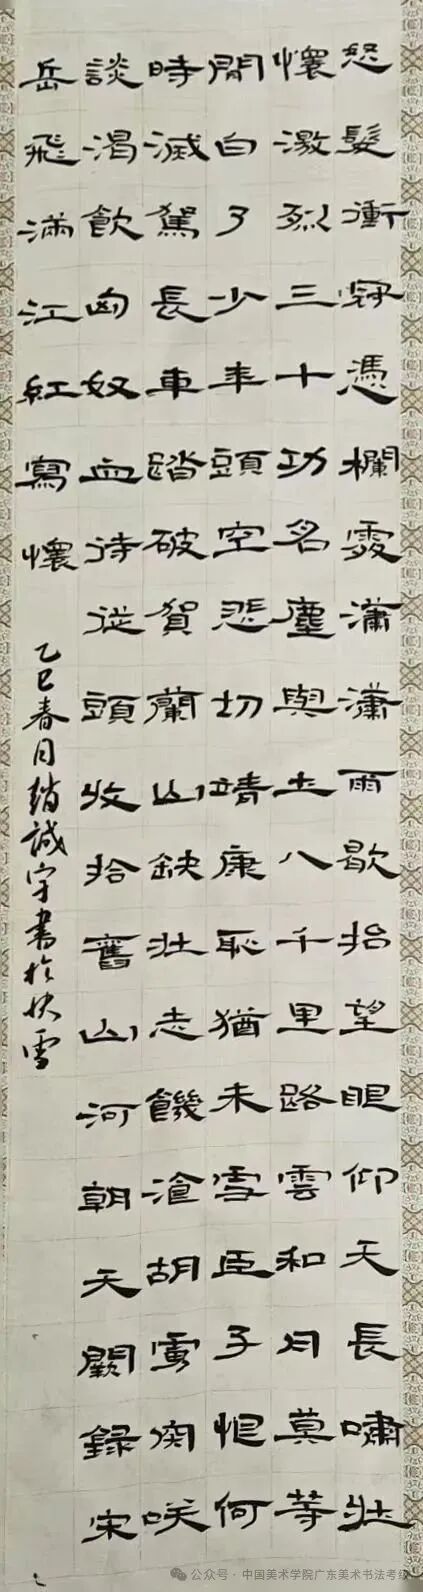 怒髮衝冠憑欄處瀟瀟雨歇抬望眼仰天長嘯壯
懷激烈三十功名塵與土八千里路雲和月莫等
閒白了少年頭空悲切靖康恥猶未雪臣子恨何
時滅駕長車踏破賀蘭山缺壯志饑湌胡虜肉咲
談渴飲匈奴血待從頭收拾舊山河朝天闕錄宋
岳飛滿江紅寫懷
乙巳春月趙誠宇書於快雪
公众号 · 中国美术学院广东美术书法考级